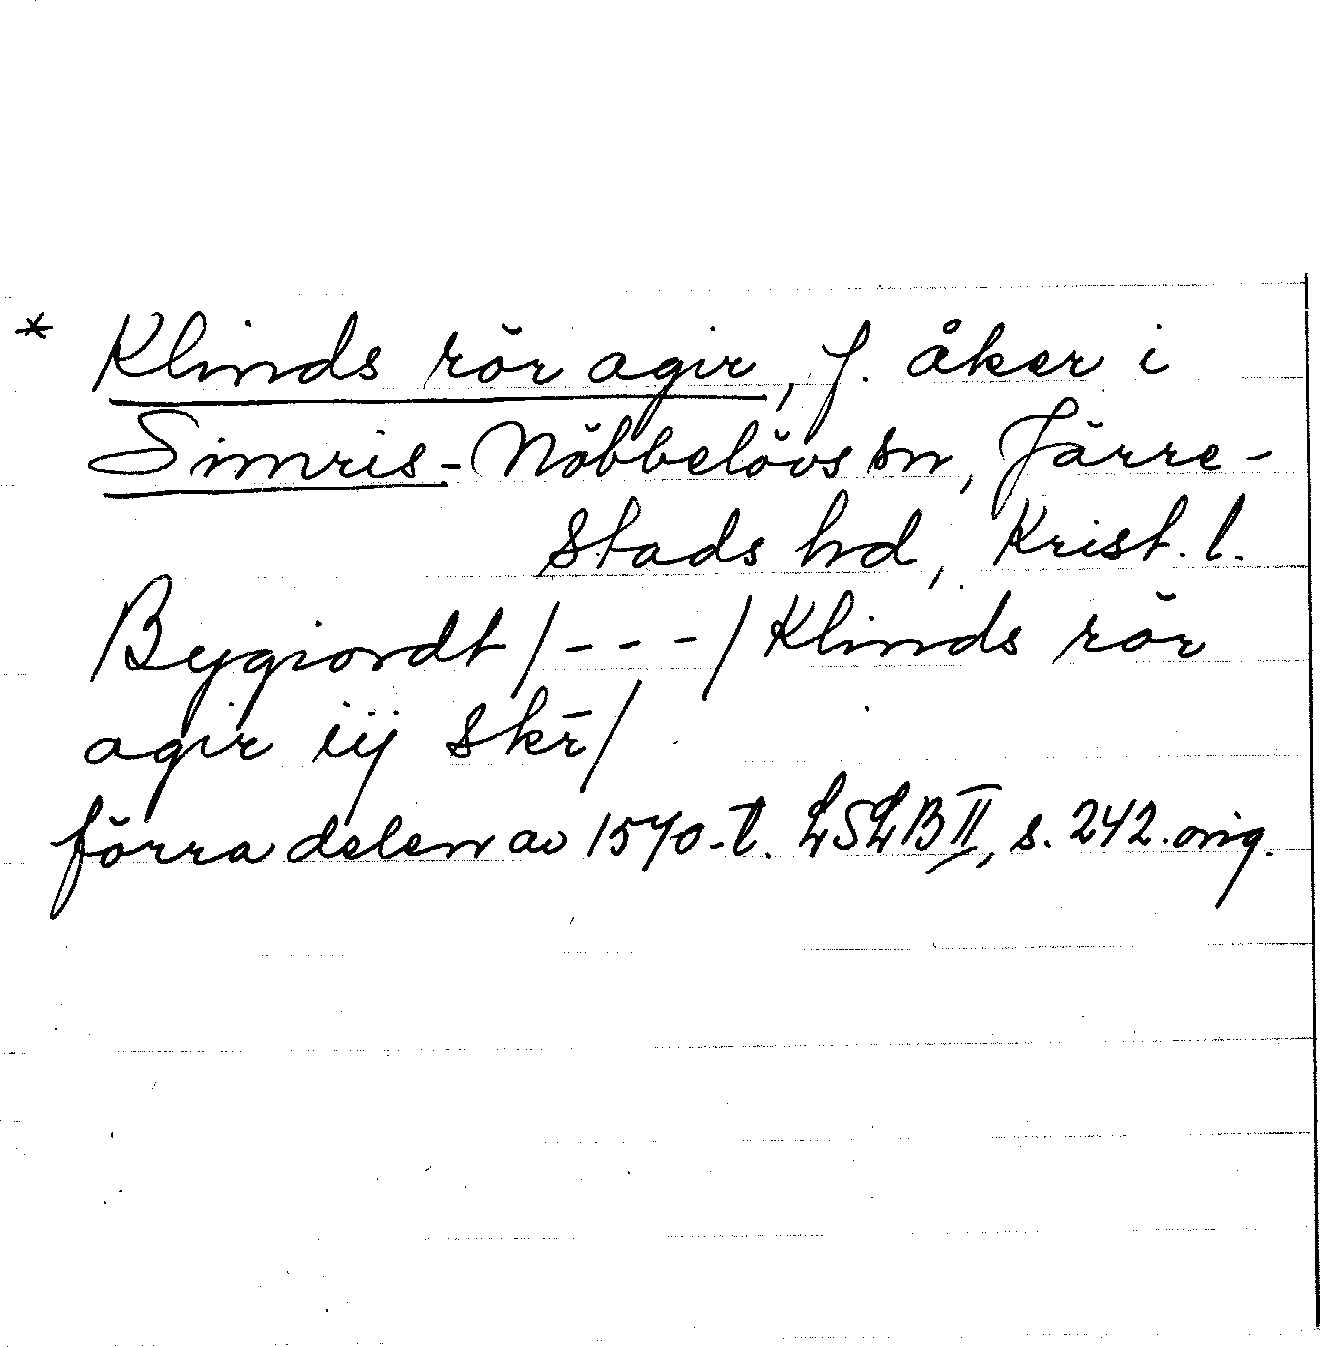 * Klinds rör agir, f. åker i
Simris-Nöbbelövs sn, Järre-
stads hd, Krist. l.
Bygiordt /---/ Klinds rör
agir iij skr̄/
förra delen av 1570-t. LSLB II, s. 242. orig.